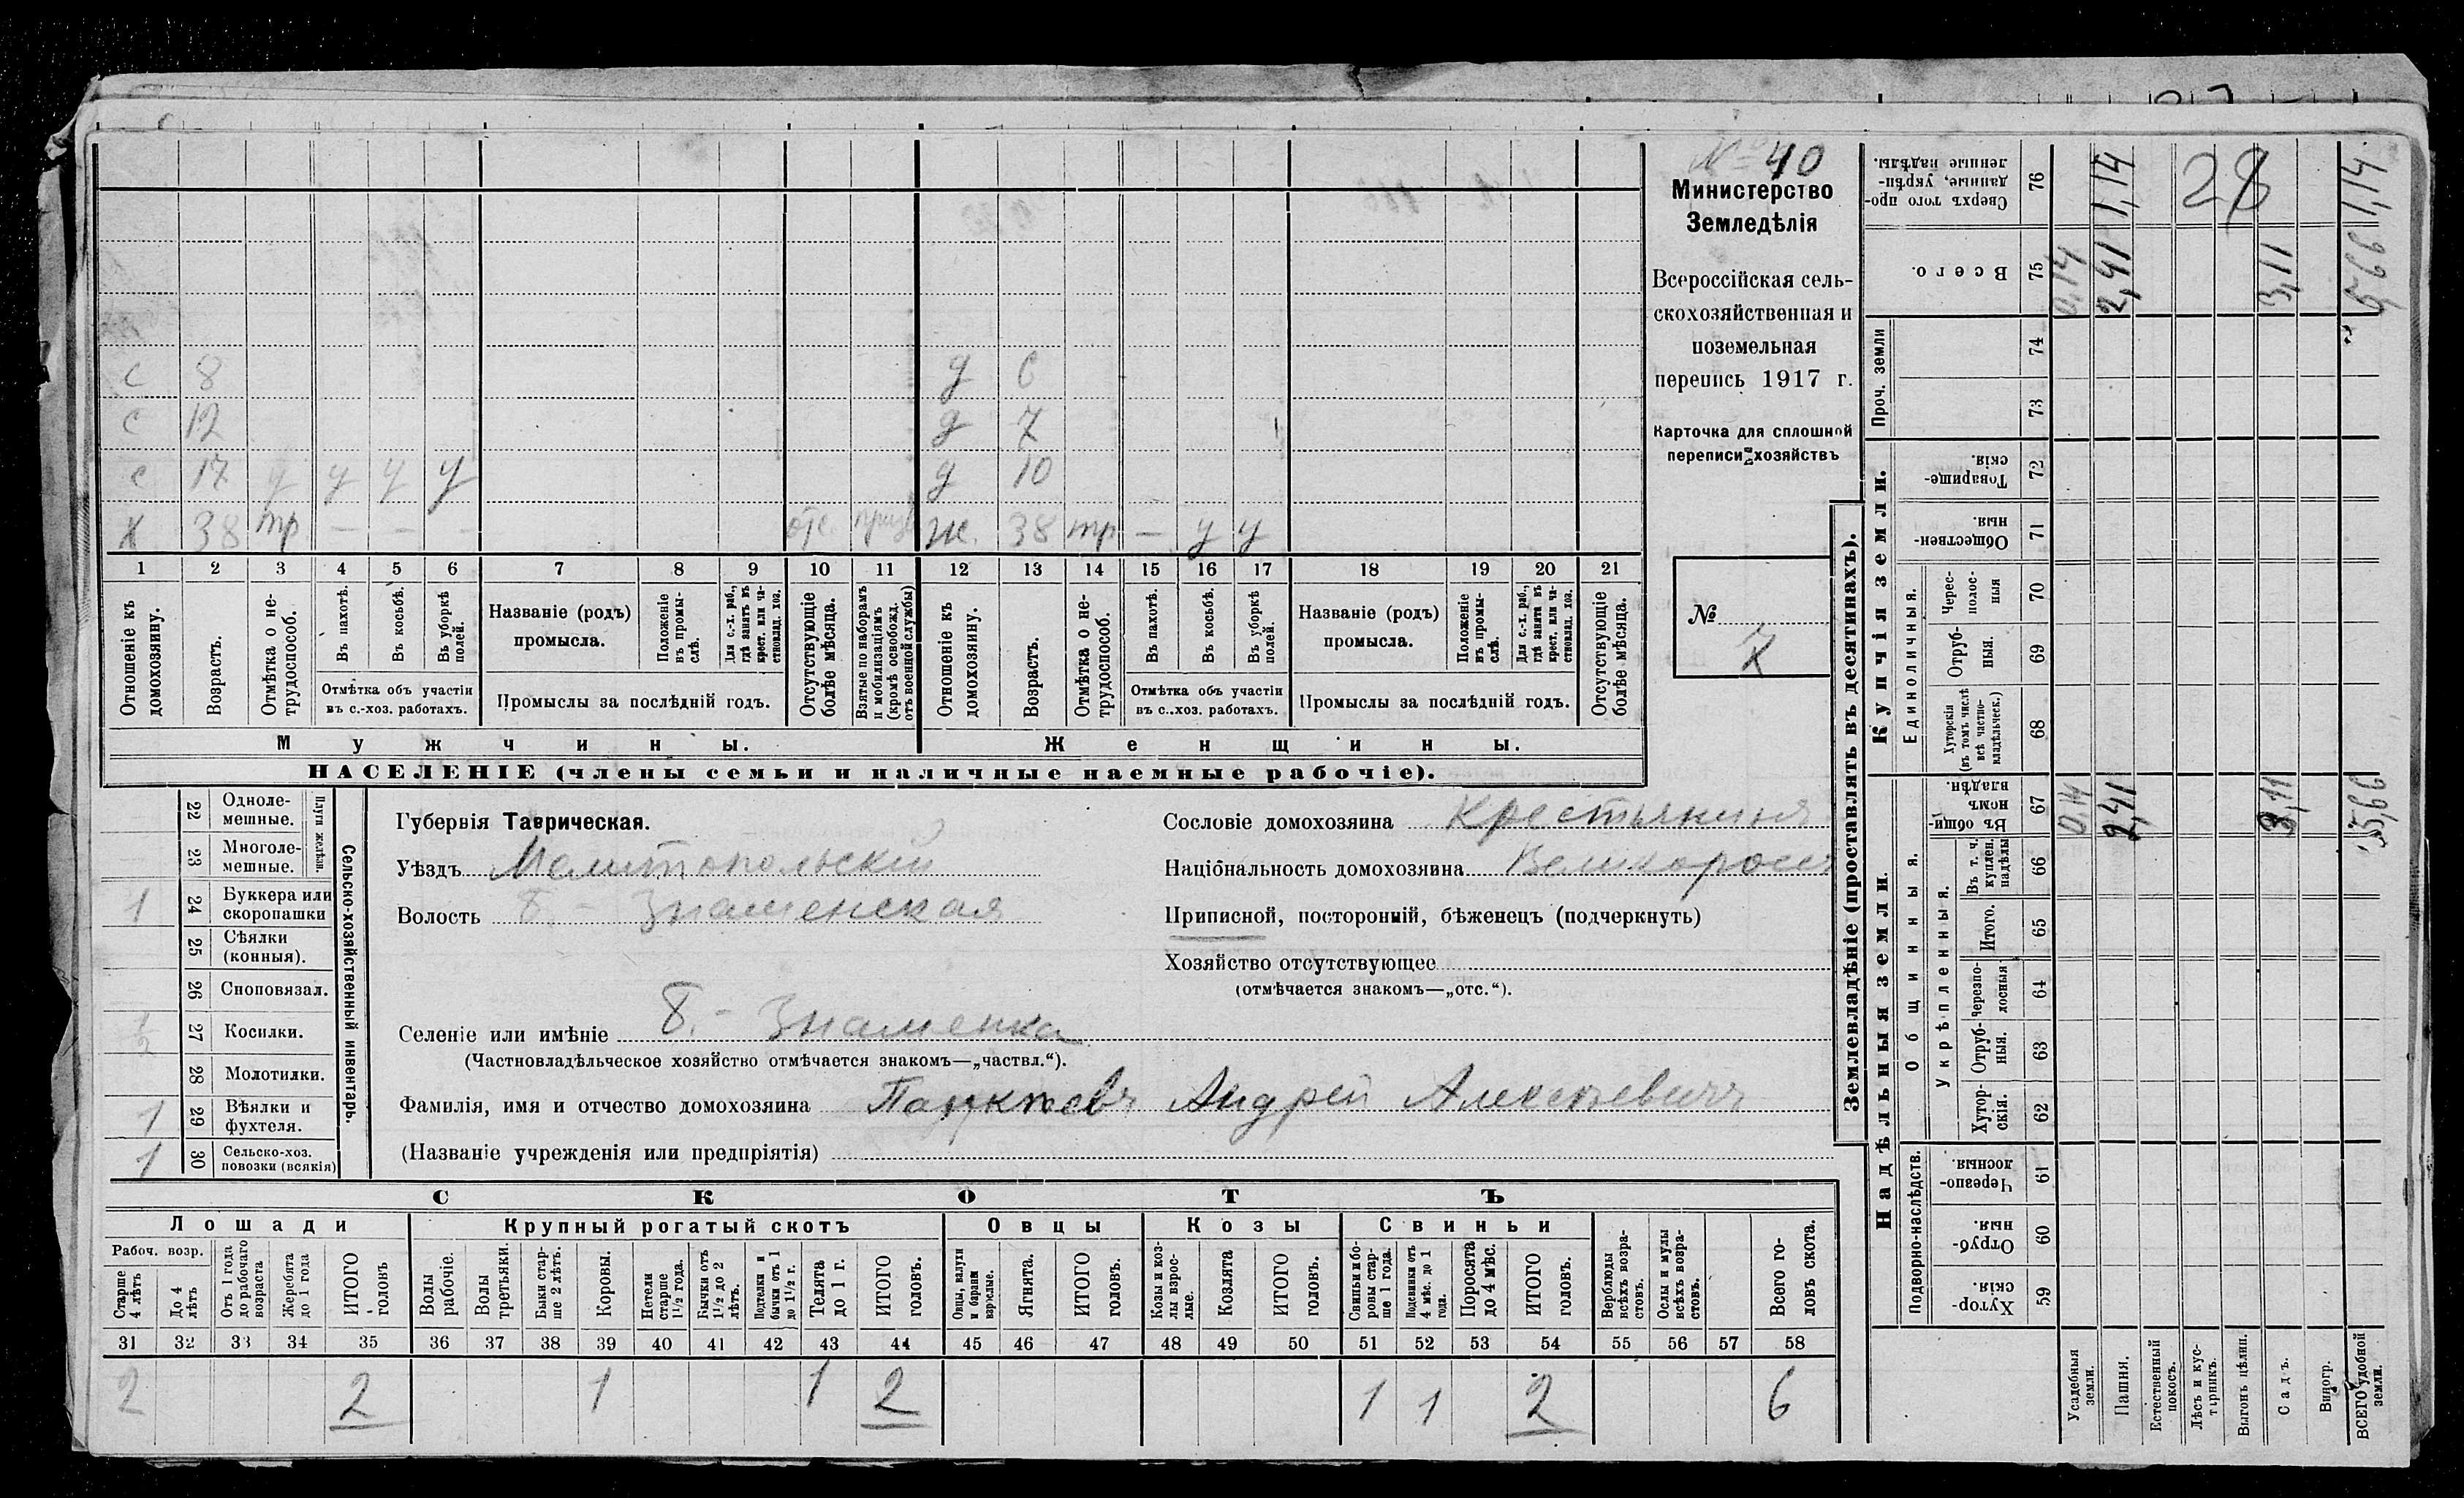 № 40
Министерство
Земледѣлія
Всероссійская сель-
скохозяйственная и
поземельная
перепись 1917 г.
Карточка для сплошной
переписи хозяйствъ
№
X
с 8 д 6
с 12 д 7
с 17 у у у у д 10
X 38 тр. — — — отс. призв ж. 38 тр — у у
1 2 3 4 5 6 7 8 9 10 11 12 13 14 15 16 17 18 19 20 21
Отношеніе къ домохозяину.
Возрастъ.
Отмѣтка о не-трудоспособ.
Въ пахотѣ.
Въ косьбѣ.
Въ уборкѣ полей.
Отмѣтка объ участіи
въ с.-хоз. работахъ.
Названіе (родъ)
промысла.
Положеніе въ промы-слѣ.
Для с.-х. раб., гдѣ занятъ въ крест. или ча-стновлад. хоз.
Промыслы за послѣдній годъ.
Отсутствующіе болѣе мѣсяца.
Взятые по наборамъ и мобилизаціямъ (кромѣ освобожд. отъ военной службы)
Отношеніе къ домохозяину.
Возрастъ.
Отмѣтка о не-трудоспособ.
Въ пахотѣ.
Въ косьбѣ.
Въ уборкѣ полей.
Отмѣтка объ участіи
въ с..хоз. работахъ.
Названіе (родъ)
промысла.
Положеніе въ промы-слѣ.
Для с.-х. раб., гдѣ занята въ крест. или ча-стновлад. хоз.
Промыслы за послѣдній годъ.
Отсутствующіе болѣе мѣсяца.
Мужчины. Женщины.
НАСЕЛЕНІЕ (члены семьи и наличные наемные рабочіе).
Сельско-хозяйственный инвентарь.
Плуги желѣзн.
22 Одноле-мешные.
23 Многоле-мешные.
1 24 Буккера или скоропашки
25 Сѣялки (конныя).
26 Сноповязал.
1/2 27 Косилки.
28 Молотилки.
1 29 Вѣялки и фухтеля.
1 30 Сельско-хоз. повозки (всякія)
Губернія Таврическая.
Уѣздъ Мелитопольскій
Волость Б. - Знаменская
Селеніе или имѣніе Б. - Знаменка
(Частновладѣльческое хозяйство отмѣчается знакомъ—„частвл.“).
Фамилія, имя и отчество домохозяина Андрей Алексѣевичъ
(Названіе учрежденія или предпріятія)
Сословіе домохозяина Крестьянинъ
Національность домохозяина Великороссъ
Приписной, посторонній, бѣженецъ (подчеркнуть)
Хозяйство отсутствующее
(отмѣчается знакомъ—„отс.“).
СКОТЪ
Лошади Крупный рогатый скотъ Овцы Козы Свиньи
Рабоч. возр.
Старше 4 лѣтъ
До 4 лѣтъ
Отъ 1 года до рабочаго возраста
Жеребята до 1 года
ИТОГО головъ
Волы рабочіе.
Волы третьяки.
Быки стар-ше 2 лѣтъ.
Коровы.
Нетели старше 1 1/2 года.
Бычки отъ 1 1/2 до 2 лѣтъ.
Подтелки и бычки отъ 1 до 1 1/2 г.
Телята до 1 г.
ИТОГО головъ.
Овцы, валухи и бараны взрослые.
Ягнята.
ИТОГО головъ.
Козы и коз-лы взрос-лые.
Козлята
ИТОГО головъ.
Свиньи и бо-ровы стар-ше 1 года.
Подсвинки отъ 4 мѣс. до 1 года.
Поросята до 4 мѣс.
ИТОГО головъ.
Верблюды всѣхъ возра-стовъ.
Ослы и мулы всѣхъ возра-стовъ.
Всего го-ловъ скота.
31 32 33 34 35 36 37 38 39 40 41 42 43 44 45 46 47 48 49 50 51 52 53 54 55 56 57 58
2 2 1 1 2 1 1 2 6
Землевладѣніе (проставлять въ десятинахъ).
Надѣльныя земли.
Купчія земли.
Проч. земли
Подворно-наслѣдств.
Общинныя.
Укрѣпленныя.
Единоличныя.
Хутор-скія. 59
Отруб-ныя. 60
Черезпо-лосныя. 61
Хутор-скія. 62
Отруб-ныя. 63
Черезпо-лосныя 64
Итого. 65
Въ т. ч. куплен. надѣлы 66
Въ общин-номъ владѣн. 67
Хуторскія (въ томъ числѣ всѣ частно-владѣльческ.) 68
Отруб-ныя. 69
Черес-полос-ныя 70
Обществен-ныя. 71
Товарище-скія. 72
73
74
Всего. 75
Сверхъ того про-данные, укрѣп-ленные надѣлы. 76
Усадебныя земли. 0,14 0,14
Пашня. 2,41 2,41 1,14
Естественный покосъ.
Лѣсъ и кус-тарникъ.
28
Выгонъ цѣлин.
Садъ. 3,11 3,11
Виногр.
ВСЕГО удобной земли. 5,66 5,66 1,14